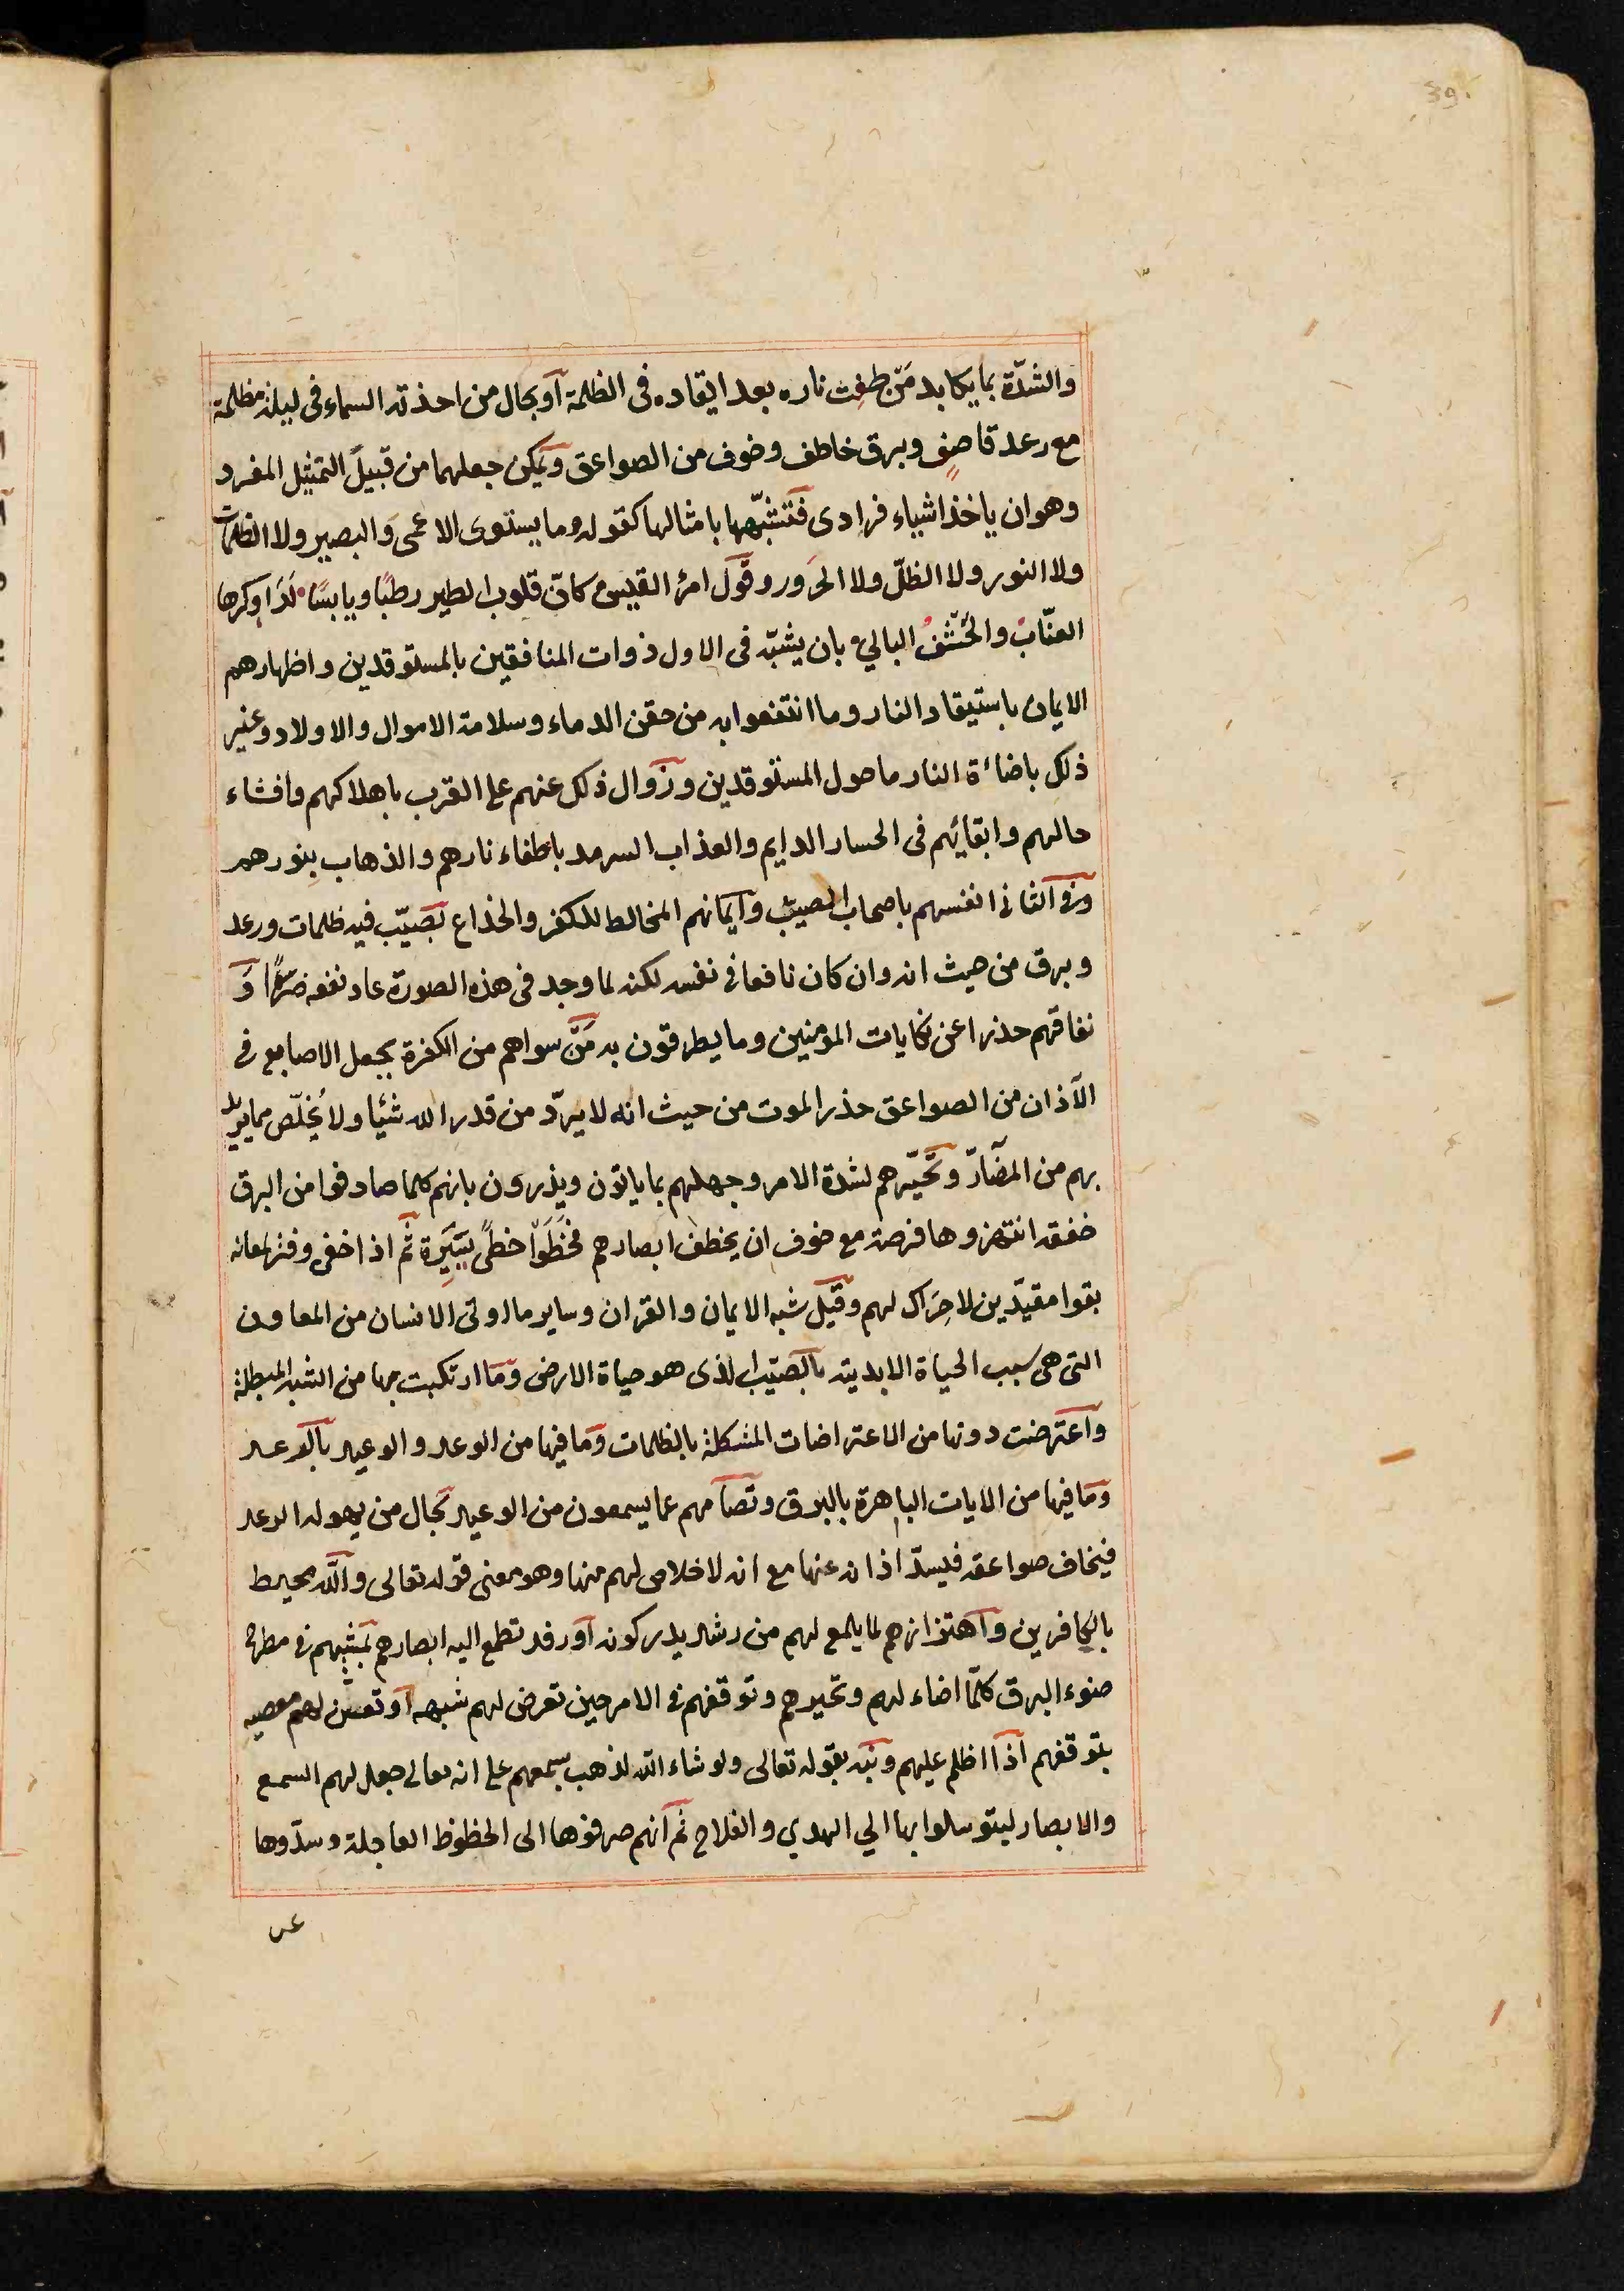 39.
والشدّة بما يكابد مَن طفِئت ناره بعد ايقاده فى الظلمة اَو بحال من اخذته السماء فى ليلة مظلمة
مع رعد قاصف وبرق خاطف وخوف من الصواعق ويمكن جعلهما من قبيل التمثيل المفرد
وهو ان ياخذ اشياء فرادى فتشبّهها بامثالها كقوله وما يستوى الاعمى والبصير ولا الظلمات
ولا النور ولا الظلّ ولا الحَرور وقول امرئ القيس كانّ قلوب الطير رطبًا ويابسًا لَدَا وكرها
العنّابُ والحَشَفُ البالي بان يشبّه فى الاول ذوات المنافقين بالمستوقدين واظهارهم
الايمان باستيقاد النار وما انتفعوا به من حقن الدماء وسلامة الاموال والاولاد وغير
ذلك باضاءة النار ما حول المستوقدين وزوال ذلك عنهم على القرب باهلاكهم وافشاء
حالهم وابقائهم فى الخسار الدايم والعذاب السرمد باطفاء نارهم والذهاب بنورهم
وفى الثانى انفسهم باصحاب الصيّب وايمانهم المخالط للكفر والخداع بصَيّب فيه ظلمات ورعد
وبرق من حيث انه وان كان نافعا فى نفسه لكنه لما وجد فى هذه الصورة عاد نفعه ضرًّا وَ
نفاقهم حذرا عن نكايات المومنين وما يطرقون به مَن سواهم من الكفرة بجعل الاصابع فى
الآذان من الصواعق حذر الموت من حيث انه لا يردّ من قدر الله شيئا ولا يُخلّص مما يريد
بهم من المضَارّ وتحَيّرهم لشدة الامر وجهلهم بما ياتون ويذرون بانهم كلما صادفوا من البرق
خفقة انتهزوها فرصة مع خوف ان يخطف ابصارهم فخَطَوْا خطًى يَسِيرة ثم اذا خفى وفتر لمعانه
بقوا مقيدّين لا حِرَاك لهم وقيل شبه الايمان والقران وساير ما اوتى الانسان من المعاون
التى هى سبب الحياة الابدية بالصيّب الذى هو حياة الارض وما ارتكبت بها من الشبه المبطلة
واعترضت دونها من الاعتراضات المشكلة بالظلمات وما فيها من الوعد والوعيد بالرعد
وما فيها من الايات الباهرة بالبرق وتصامّهم عما يسمعون من الوعيد بحال من يهوله الرعد
فيخاف صواعقه فيسدّ اذانه عنها مع انه لا خلاص لهم منها وهو معنى قوله تعالى والله محيط
بالكافرين واهتزازهم لما يلمع لهم من رشد يدركونه او رفد تطمح اليه ابصارهم بمشيهم فى مطرح
ضوء البرق كلّما اضاء لهم وتحيرهم وتوقفهم فى الامر حين تعرض لهم شبهة او تعنّ لهم مصيبة
بتوقفهم اذا اظلم عليهم ونبّه بقوله تعالى ولو شاء الله لذهب بسمعهم على انه تعالى جعل لهم السمع
والابصار ليتوسلوا بها الي الهدي والفلاح ثم انهم صرفوها الى الحظوظ العاجلة وسدّوها
عن